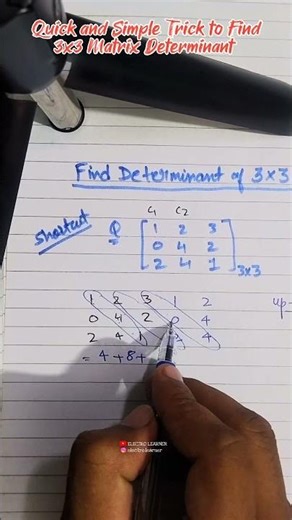 Quick and Simple Trick to Find
3x3 Matrix Determinant
Find Determinant of 3×3
C1 C2
Shortcut Q [ 1 2 3
0 4 2
2 4 1 ] 3×3
1 2 3 1 2
0 4 2 0 4
2 4 1 2 4
= 4 + 8 +
up-
ELECTRO LEARNER